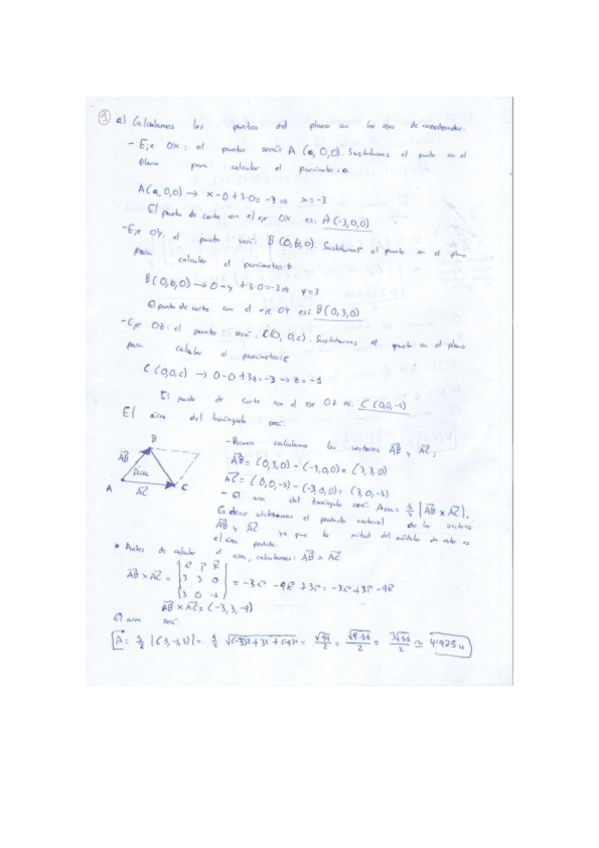 1 a) Calculamos los puntos del plano con los ejes de coordenadas:
- Eje OX: el punto será A (a, 0, 0). Sustituimos el punto en el
plano para calcular el parámetro: a
A(a, 0, 0) → x - 0 + 3·0 = -3 ⇒ x = -3
El punto de corte con el eje OX es: A(-3, 0, 0)
- Eje OY, el punto será B (0, b, 0). Sustituimos el punto en el plano
para calcular el parámetro: b
B(0, b, 0) → 0 - y + 3·0 = -3 ⇒ y = 3
El punto de corte con el eje OY es: B(0, 3, 0)
- Eje OZ: el punto será C(0, 0, c). Sustituimos el punto en el plano
para calcular el parámetro: c
C(0, 0, c) → 0 - 0 + 3z = -3 ⇒ z = -1
El punto de corte con el eje OZ es: C(0, 0, -1)
El área del triángulo será:
B
AB
Area
A
AC
C
- Primero calculamos los vectores AB y AC:
AB = (0, 3, 0) - (-3, 0, 0) = (3, 3, 0)
AC = (0, 0, -1) - (-3, 0, 0) = (3, 0, -1)
- El area del triángulo será: Area = 1/2 |AB x AC|.
Es decir utilizaremos el producto vectorial de los vectores
AB y AC ya que la mitad del módulo de este es
el área pedida.
* Antes de calcular el area, calculamos: AB x AC
AB x AC = | i j k |
| 3 3 0 | = -3i - 9k + 3j = -3i + 3j - 9k
| 3 0 -1 |
AB x AC = (-3, 3, -9)
El area será: